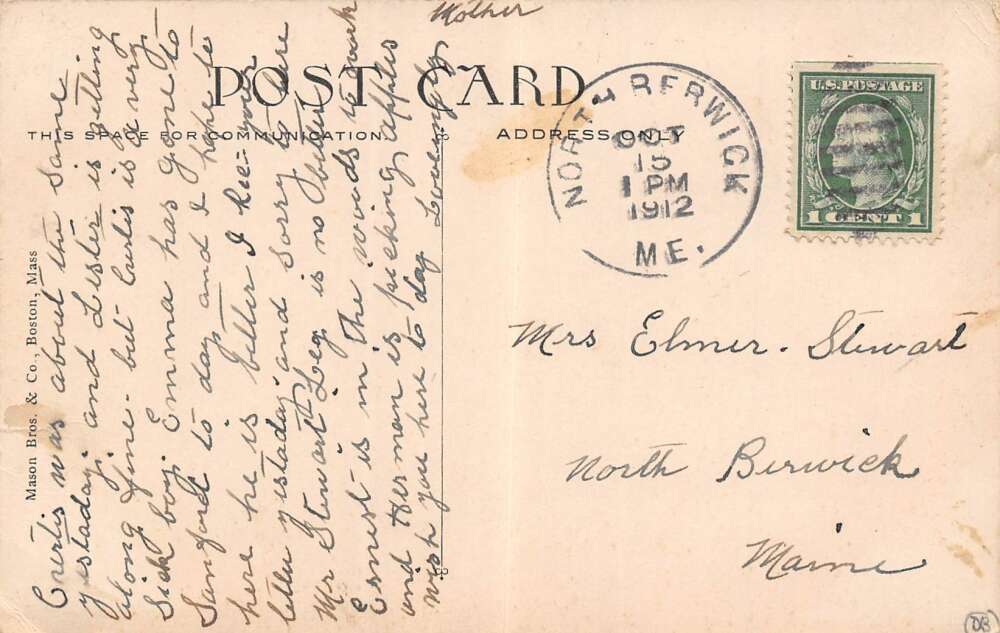 POST CARD
THIS SPACE FOR COMMUNICATION
ADDRESS ONLY
Mason Bros. & Co., Boston, Mass
Curtis was about the same
yestaday, and Lester is getting
along fine - but Curtis is a very
sick boy. Emma has gone to
Sanford to day and I hope to
here he is better I
letter yestaday and sorry to here
Mr Stewart Leg is no better
Ernest is in the woods to work
and Herman is picking apples
wish you here to day Lovingly
Mother
NORTH BERWICK
OCT
15
1 PM
1912
ME.
U.S. POSTAGE
1 CENT 1
Mrs Elmer. Stewart
North Berwick
Maine
DB